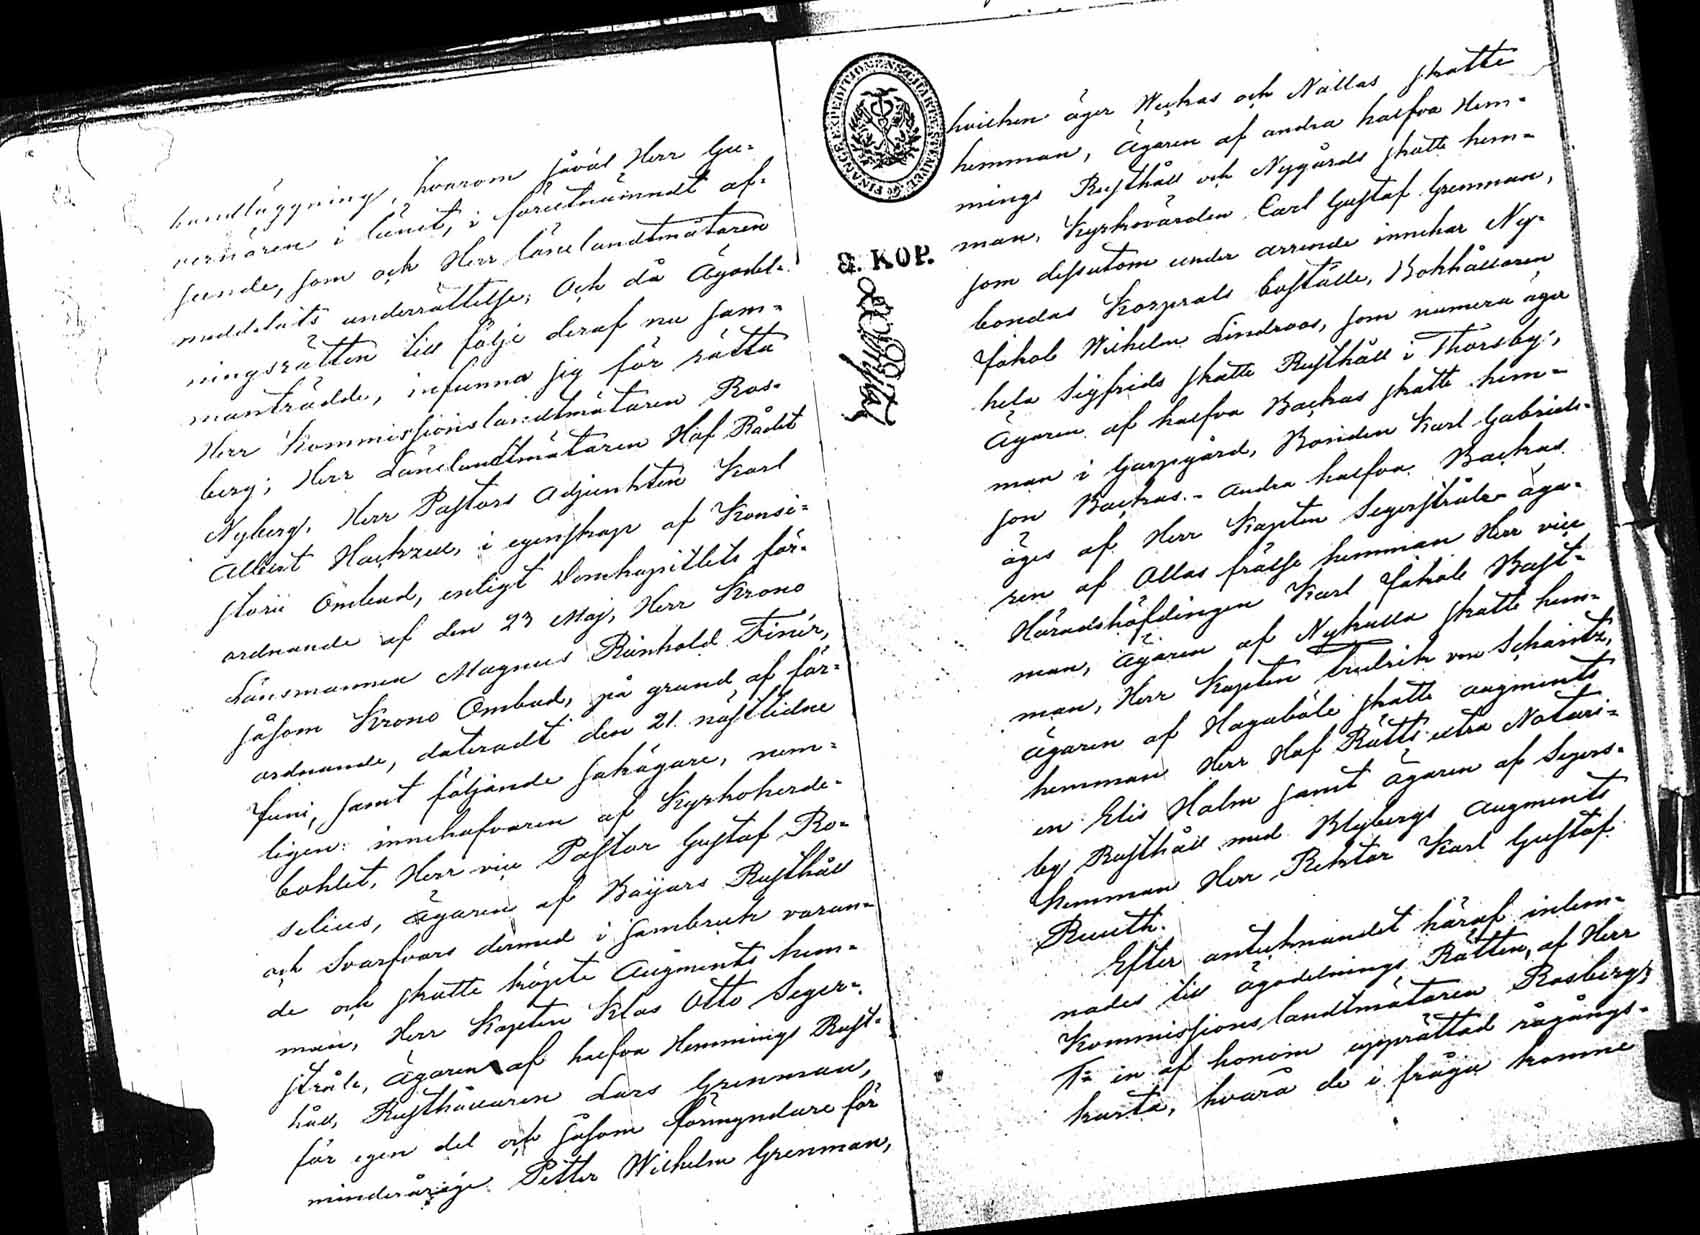 handläggning, hvarom såväl Herr Gu-
vernören i länet, i föreetnämndt af-
seende, som och Herr Länelandtmätaren
meddelats underrättelse; Och då Ägodel-
ningsrätten till följe deraf nu sam-
manträdde, infunno sig för rätta
Herr Kommissionslandtmätaren Ros-
berg; Herr Länelandtmätaren Hof Rådet
Nyberg, Herr Pastors Adjunkten Karl
Albert Hackzell, i egenskap af Konsi-
storii Ombud, enligt Domkapitlets för-
ordnande af den 23 Maj, Herr Krono
Länsmannen Magnus Reinhold Finér,
såsom Krono Ombud, på grund af för-
ordnande, dateradt den 21. nästlidne
Juni, samt följande sakägare, nem-
ligen: innehafvaren af Kyrkoherde-
bohlet, Herr vice Pastor Gustaf Ro-
selius, Ägaren af Baijars Rusthåll
och Svarfvars dermed i sambruk varan-
de och skatte köpte Augments hem-
man, Herr Kapten Klas Otto Seger-
stråle, Ägaren af halfva Hemmings Rust-
håll, Rusthållaren Lars Grenman,
för egen del och såsom förmyndare för
minderårige Petter Wilhelm Grenman,
FINANCE EXPEDITIONENS CHARTÆ STEMPEL
&. KOP.
hvilken äger Weckas och Nallas skatte
hemman, Ägaren af andra halfva Hem-
mings Rusthåll och Nygårds skatte hem-
man, Kyrkovärden Carl Gustaf Grenman,
som dessutom under arrende innehar Ny-
bondas Korprals boställe, Bokhållaren
Jakob Wilhelm Lindroos, som numera äger
hela Sigfrids skatte Rusthåll i Thorsby;
Ägaren af halfva Backas skatte hem-
man i Garpgård, Bonden Karl Gabriels-
son Backas. - Andra halfva Backas
äges af Herr Kapten Segerstråle - äga-
ren af Ollas frälse hemman Herr vice
Häradshöfdingen Karl Jakob Bast-
man, Ägaren af Nykulla skatte hem-
man, Herr Kapten Fredrik von Schantz,
Ägaren af Hagaböle skatte augments
hemman Herr Hof Rätts extra Notari-
en Elis Holm samt ägaren af Segers-
by Rusthåll med Blybergs Augments
hemman Herr Rektor Karl Gustaf
Reuth.
Efter antecknandet häraf inlem-
nades till Ägodelnings Rätten, af Herr
Kommissions landtmätaren Rosberg,
1o en af honom upprättad rågångs-
karta, hvarå de i fråga komme